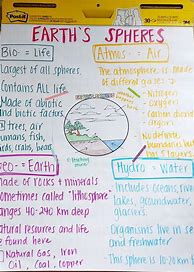 Post-it
EARTH'S SPHERES
Bio- = Life
Largest of all spheres.
Contains ALL life
Made of abiotic
and biotic factors
trees, air,
humans, fish,
birds, crabs,
bears
Atmos- = Air
The atmosphere is made
of different gases
- Nitrogen
- Oxygen
- Carbon
No definite
boundaries but
has 5 layers
Geo- = Earth
Made of rocks + minerals
Sometimes called "lithosphere"
ranges 40-280 km deep
Natural resources and life
found here
Natural Gas, Iron
Oil, Coal, copper
Hydro - Water
Includes oceans, rivers
lakes, groundwater,
glaciers.
Organisms live in se
and freshwater
- This sphere